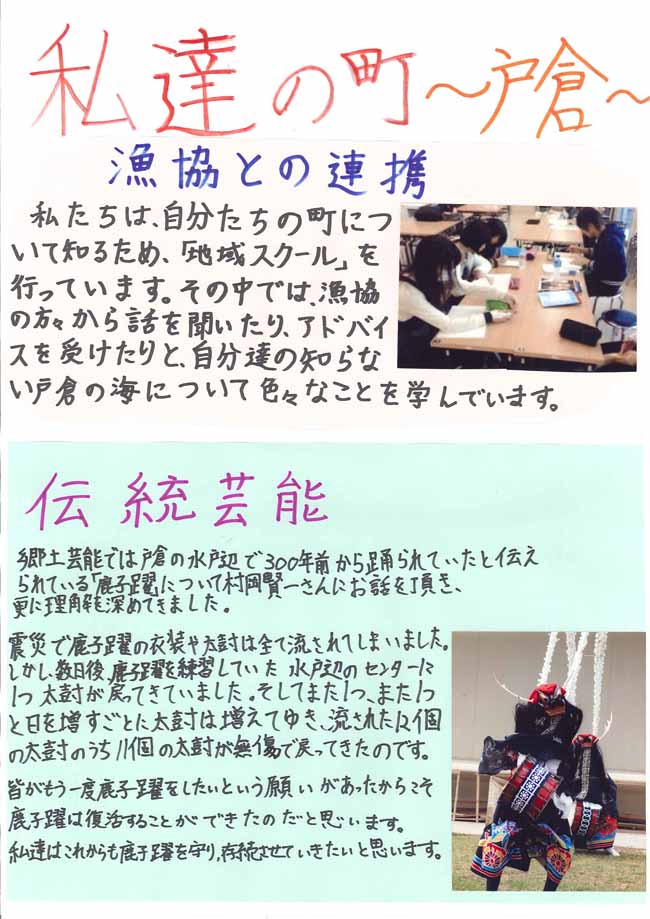 私達の町〜戸倉〜
漁協との連携
私たちは、自分たちの町につ
いて知るため、「地域スクール」を
行っています。その中では、漁協
の方々から話を聞いたり、アドバイ
スを受けたりと、自分達の知らな
い戸倉の海について色々なことを学んでいます。
伝統芸能
郷土芸能では戸倉の水戸辺で300年前から踊られていたと伝え
られている「鹿子躍」について村岡賢一さんにお話を頂き、
更に理解を深めてきました。
震災で鹿子躍の衣装や太鼓は全て流されてしまいました。
しかし、数日後、鹿子躍を練習していた水戸辺のセンターに
1つ太鼓が戻ってきていました。そしてまた1つ、また1つ
と日を増すごとに太鼓は増えてゆき、流された12個
の太鼓のうち11個の太鼓が無傷で戻ってきたのです。
皆がもう一度鹿子躍をしたいという願いがあったからこそ
鹿子躍は復活することができたのだと思います。
私達はこれからも鹿子躍を守り、存続させていきたいと思います。